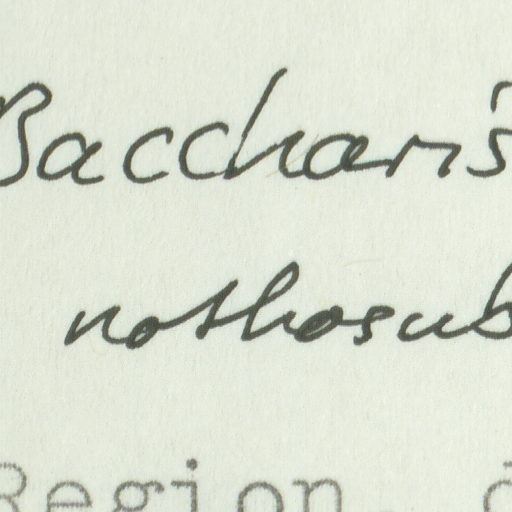 Baccharis
nothosub
Region d